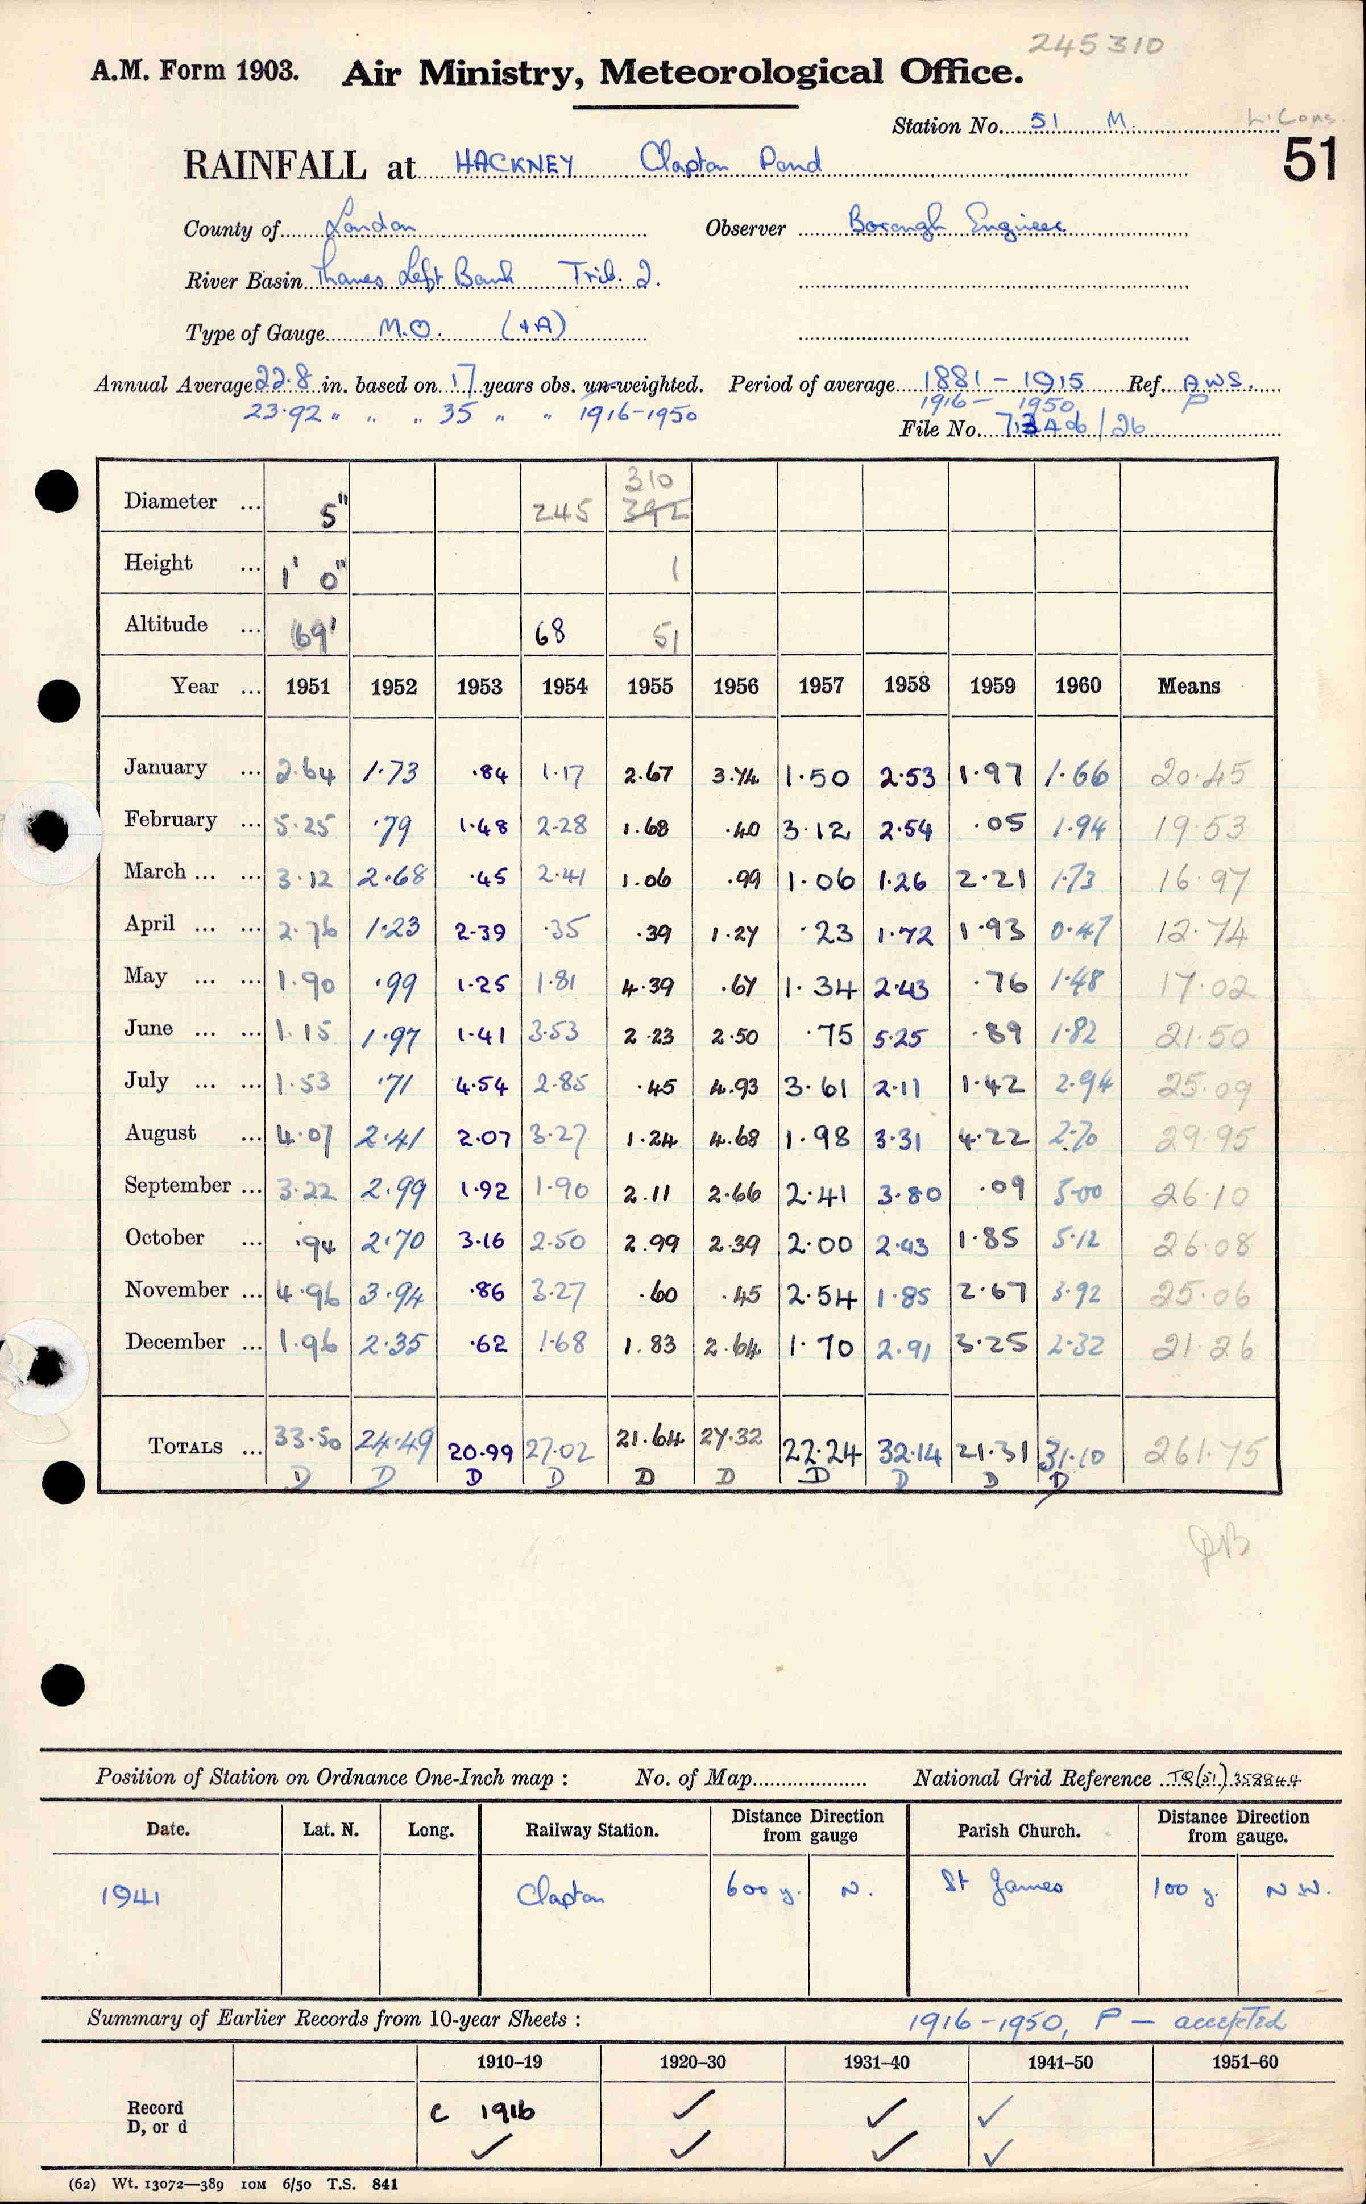 245310
A.M. Form 1903. Air Ministry, Meteorological Office.
Station No. 51 M.
51
RAINFALL at HACKNEY Clapton Pond
County of London Observer Borough Engineer
River Basin Thames Left Bank Trib. 2.
Type of Gauge M.O. (+A)
Annual Average 22.8 in. based on 17 years obs. un-weighted. Period of average 1881 - 1915 Ref. AWS.
23.92 " " " 35 " " 1916-1950 1916 - 1950 P
File No. /26
Diameter ... 5" 245 310 392
Height ... 1' 0" 1
Altitude ... 69' 68 51
Year ... 1951 1952 1953 1954 1955 1956 1957 1958 1959 1960 Means
January ... 2.64 1.73 .84 1.17 2.67 3.74 1.50 2.53 1.97 1.66 20.45
February ... 5.25 .79 1.48 2.28 1.68 .40 3.12 2.54 .05 1.94 19.53
March ... ... 3.12 2.68 .45 2.41 1.06 .99 1.06 1.26 2.21 1.73 16.97
April ... ... 2.76 1.23 2.39 .35 .39 1.27 .23 1.72 1.93 0.47 12.74
May ... ... 1.90 .99 1.25 1.81 4.39 .67 1.34 2.43 .76 1.48 17.02
June ... ... 1.15 1.97 1.41 3.53 2.23 2.50 .75 5.25 .89 1.82 21.50
July ... ... 1.53 .71 4.54 2.85 .45 4.93 3.61 2.11 1.42 2.94 25.09
August ... 4.07 2.41 2.07 3.27 1.24 4.68 1.98 3.31 4.22 2.70 29.95
September ... 3.22 2.99 1.92 1.90 2.11 2.66 2.41 3.80 .09 5.00 26.10
October ... .94 2.70 3.16 2.50 2.99 2.39 2.00 2.43 1.85 5.12 26.08
November ... 4.96 3.94 .86 3.27 .60 .45 2.54 1.85 2.67 3.92 25.06
December ... 1.96 2.35 .62 1.68 1.83 2.64 1.70 2.91 3.25 2.32 21.26
TOTALS ... 33.50 24.49 20.99 27.02 21.64 27.32 22.24 32.14 21.31 31.10 261.75
D D D D D D D D D D
Position of Station on Ordnance One-Inch map : No. of Map National Grid Reference TQ(51)
Date. Lat. N. Long. Railway Station. Distance Direction from gauge Parish Church. Distance Direction from gauge.
1941 Clapton 600 y. N. St James 100 y. N W.
Summary of Earlier Records from 10-year Sheets : 1916-1950, P - accepted
1910–19 1920–30 1931–40 1941–50 1951–60
Record c 1916 ✓ ✓ ✓
D, or d ✓ ✓ ✓ ✓
(62) Wt. 13072—389 10M 6/50 T.S. 841